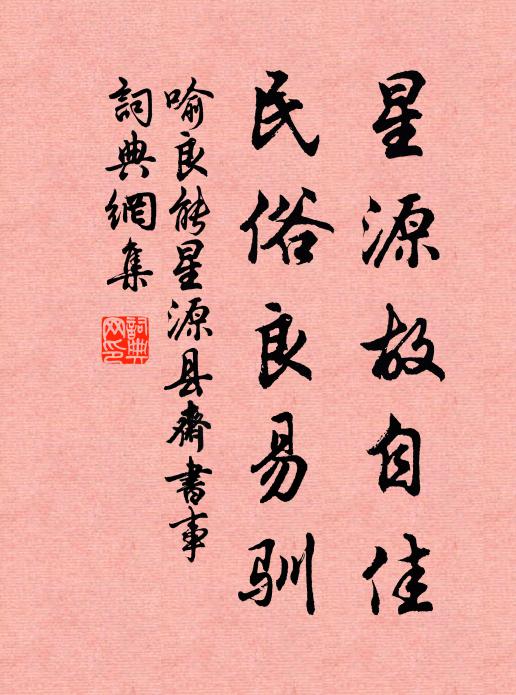 星源故自佳
民俗良易驯
喻良能星源县齋書事
詞典網集
詞典网印